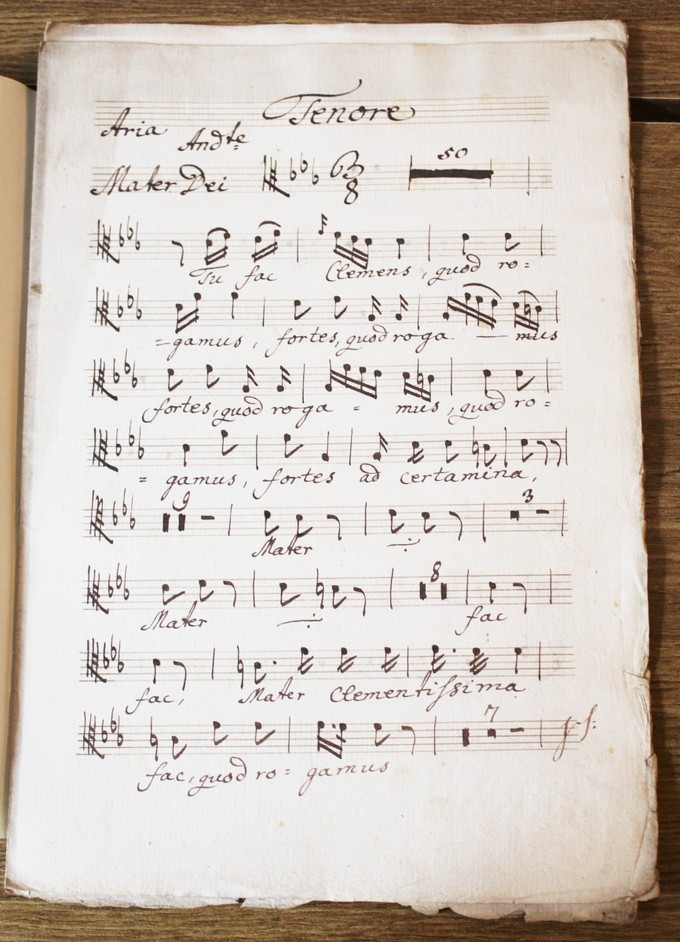 Tenore
Aria Andte
Mater Dei 3/8 50
Tu fac Clemens, quod ro=
=gamus, fortes, quod roga — mus
fortes, quod roga = mus, quod ro=
= gamus, fortes ad certamina,
9 3
Mater
8
Mater fac
fac, Mater Clementissima
7
fac, quod ro= gamus